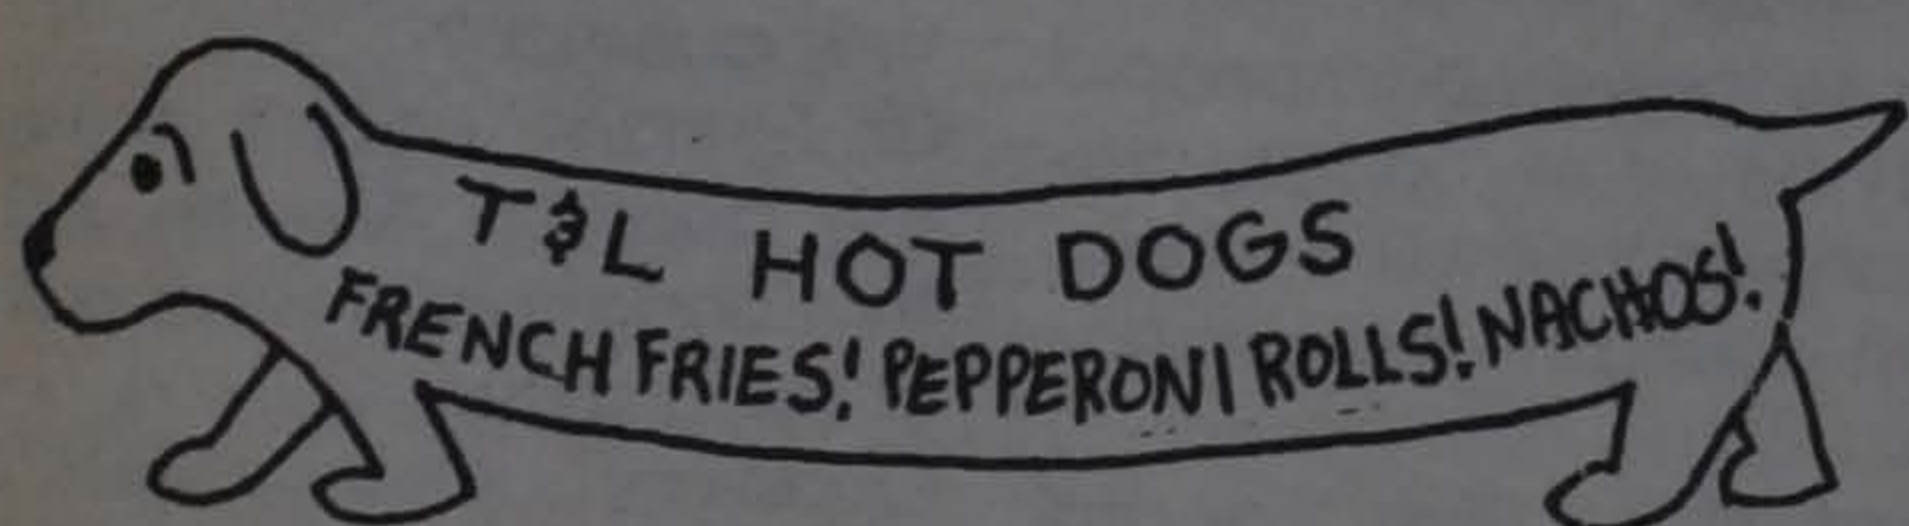 T & L HOT DOGS
FRENCH FRIES! PEPPERONI ROLLS! NACHOS!